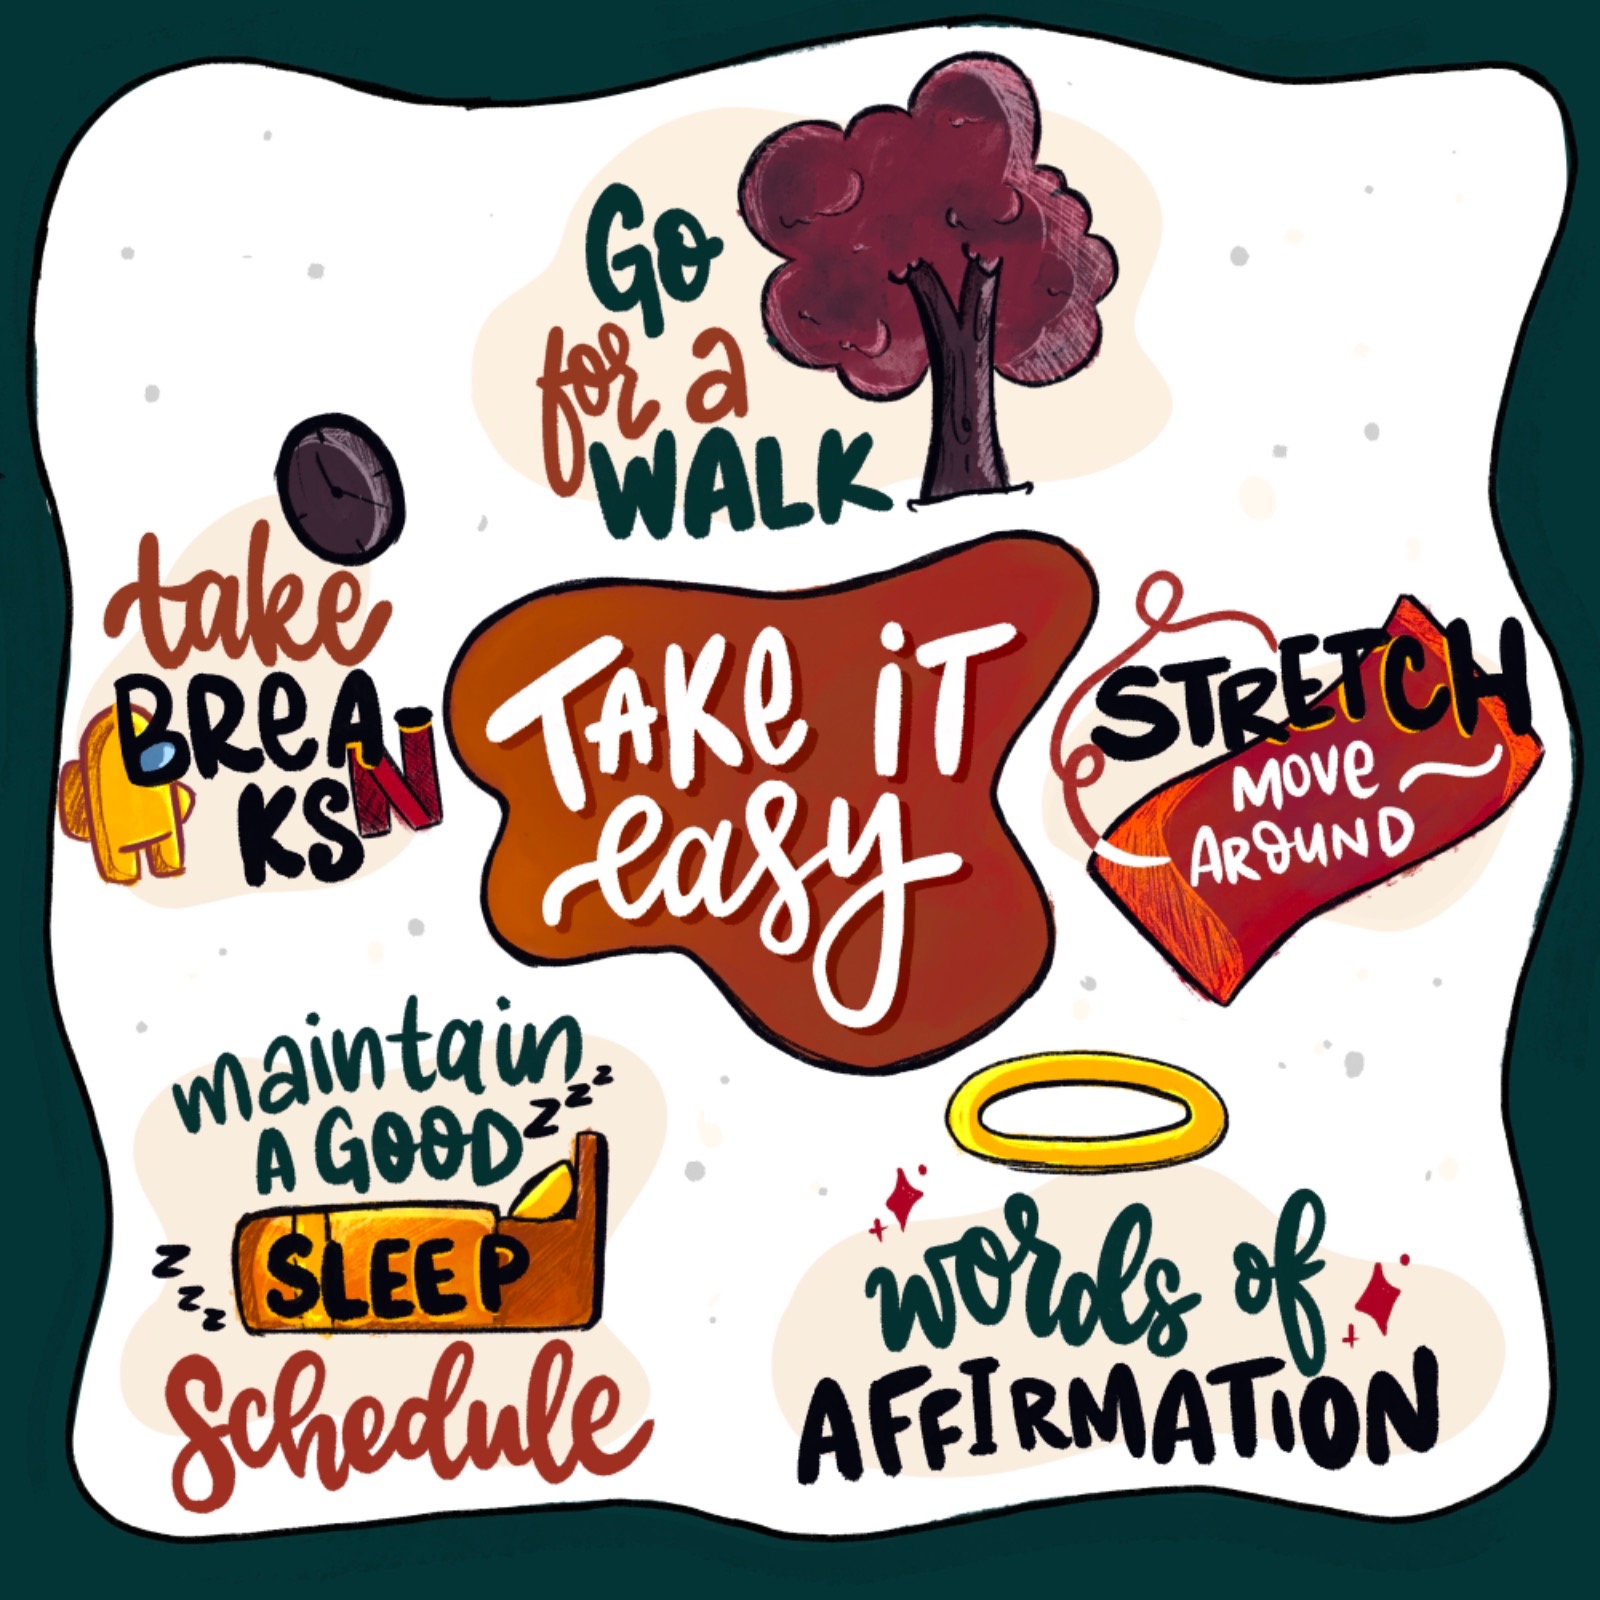 Go
for a
WALK
take
BREA
KS
TAKE iT
easy
STRETCH
MOVE
AROUND
maintain
A GOOD
zzz
SLEEP
zzz
Schedule
words of
AFFIRMATION